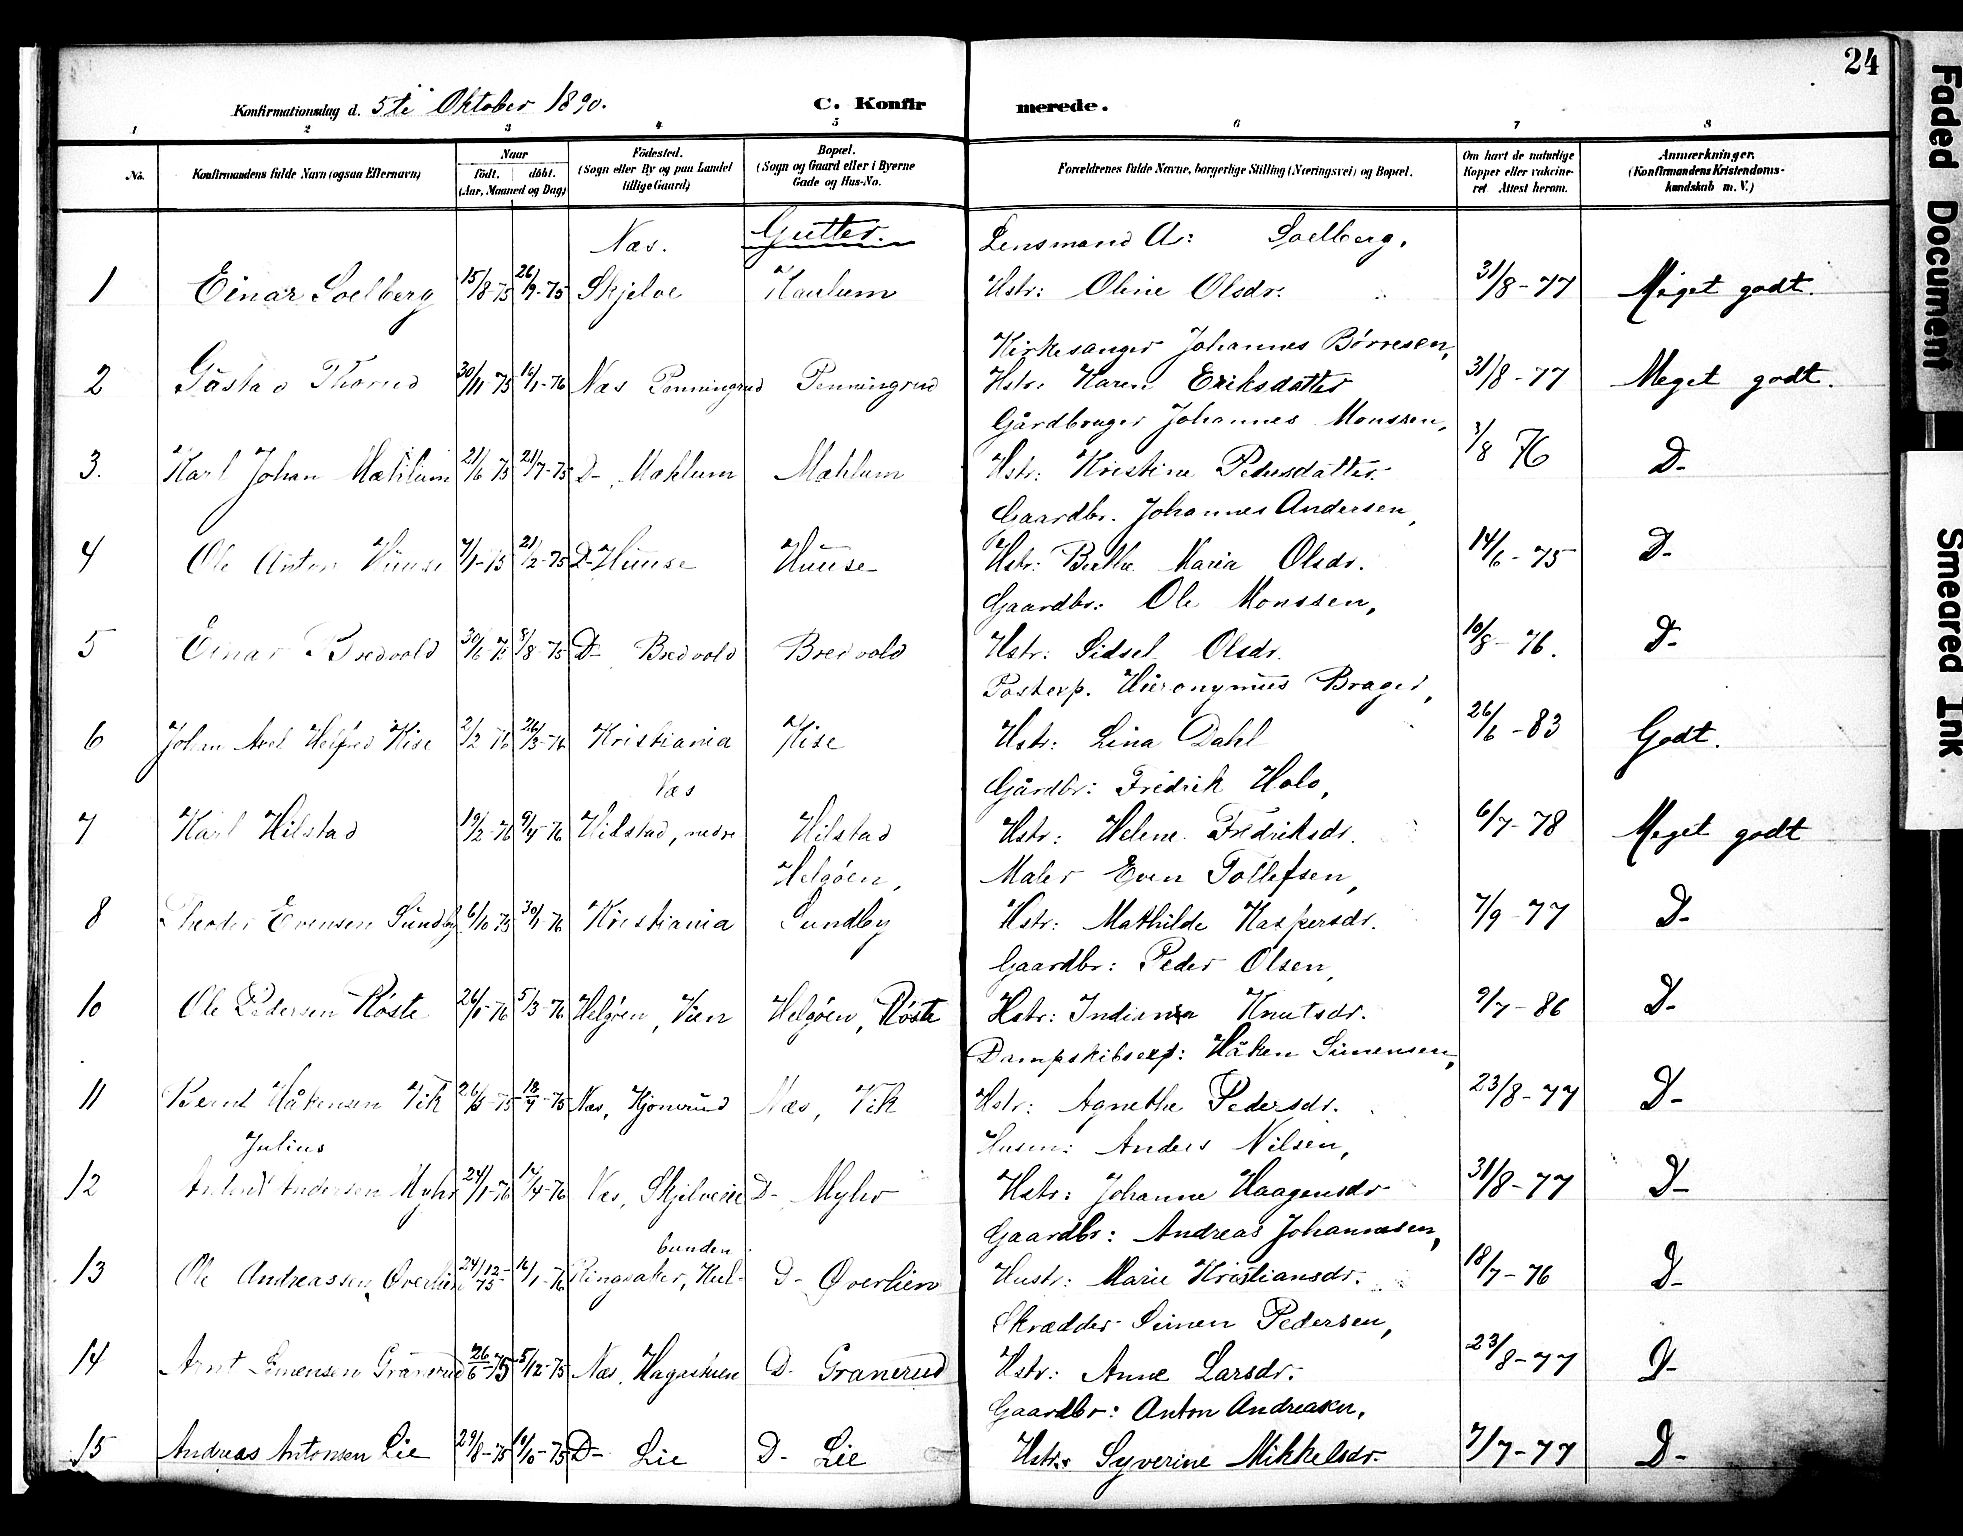 24
Konfirmationsdag d. 5te Oktober 1890.
C. Konfir merede.
1 2 3 4 5 6 7 8
No.
Konfirmandens fulde Navn (ogsaa Efternavn)
Naar
født. døbt.
(Aar, Maaned og Dag)
Fødested.
(Sogn eller By og paa Landet
tillige Gaard)
Bopæl.
(Sogn og Gaard eller i Byerne
Gade og Hus-No.
Forældrenes fulde Navne, borgerlige Stilling (Næringsvei) og Bopæl.
Om havt de naturlige
Kopper eller vakcine-
ret Attest herom.
Anmærkninger.
(Konfirmandens Kristendoms-
kundskab m. V.)
Gutter.
Næs. Lensmand A: Soelberg.
1 Einar Soelberg 15/8-75 26/9-75 Skjelve Hstr: Oline Olsdr. 31/8-77 Meget godt.
Kirkesanger Johannes Børresen,
2 Gustav Thorud 30/11 75 16/1-76 Næs Penningrud Penningrud Hstr. Karen Eriksdatter 31/8-77 Meget godt.
Gårdbruger Johannes Monssen,
3. Karl Johan Mæhlum 21/6 75 21/7-75 D- Mæhlum Mæhlum Hstr: Kristine Pedersdatter. 3/8 76 D-
Gaardbr. Johannes Andersen,
4 Ole Anton Huuse 7/1-75 21/2-75 D- Huuse Huuse Hstr: Berthe Maria Olsdr. 14/6-75 D-
Gaardbr: Ole Monssen,
5 Einar Bredvold 30/6-75 8/8-75 D- Bredvold Bredvold Hstr: Sidsel Olsdr. 10/8-76. D-
Postexp. Hieronymus Brager,
6 Johan Axel Kise 2/2-76 26/3-76 Kristiania Kise Hstr: Lina Dahl 26/6-83 Godt.
Næs Gårdbr: Fredrik Holo,
7 Karl Hilstad 19/2-76 9/4-76 Hilstad, nedre Hilstad Hstr: Helene Fredriksdr. 6/7-78 Meget godt
Helgøen, Maler Even Tollefsen,
8 Theodor Evensen Sundby 6/10 75 30/1-76 Kristiania Sundby Hstr: Mathilde Kaspersdr. 7/9-77 D-
Gaardbr: Peder Olsen,
10 Ole Pedersen Røste 26/1-76 5/3-76 Helgøen, Vien Helgøen, Røste Hstr: Indianna Knutsdr. 9/7-86 D-
Dampskibsexp: Håken Simensen,
11 Bernt Håkensen Vik 75 Næs, Kjonerud Næs, Vik Hstr: Agnethe Pedersdr. 23/8-77 D-
Julius Husm: Anders Nilsen,
12 Andersen Myhr 24/1-76 17/4-76 Næs, D- Myhr Hstr: Johanne Haagensdr 31/8-77 D-
bunden Gaardbr: Andreas Johannesen,
13 Ole Andreassen Øverlien 24/12-75 16/1-76 Ringsaker, D- Øverlien Hustr: Marie Kristiansdr. 18/7-76 D-
Skrædder Simen Pedersen,
14 Arnt Simensen Granerud 26/6-75 5/12-75 Næs, D- Granerud Hstr: Anne Larsdr. 23/8-77 D-
Gaardbr: Anton Andreasen,
15 Andreas Antonsen Lie 29/8-75 10/10-75 D- Lie D- Lie Hstr: Syverine Mikkelsdr. 7/7-77 D-
Faded Document
Smeared Ink